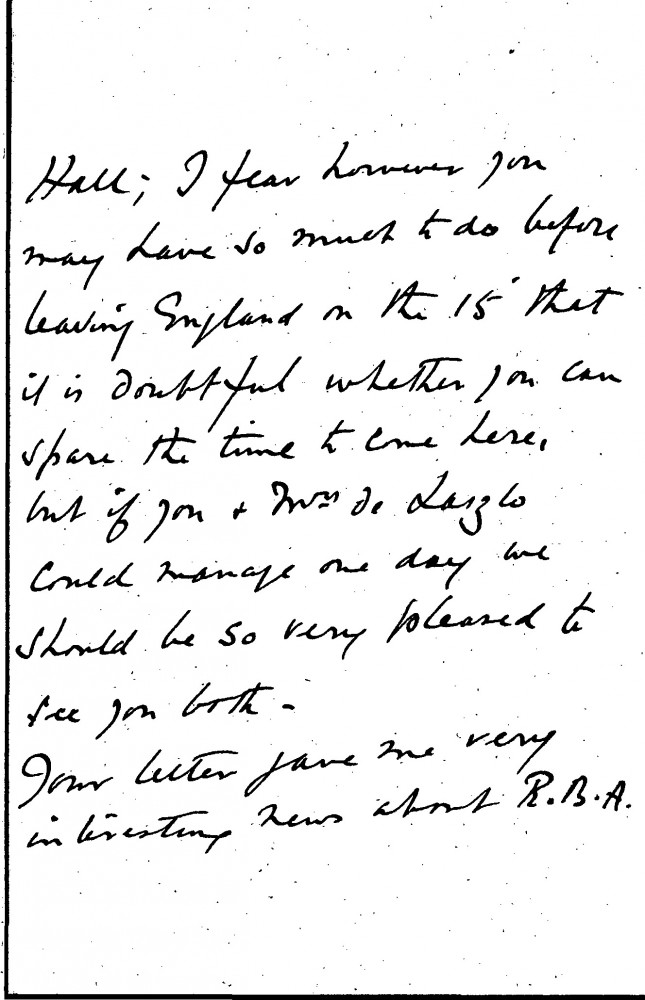 Hall; I fear however you
may have so much to do before
leaving England on the 15 that
it is doubtful whether you can
spare the time to come here,
but if you + Mrs de Laszlo
could manage one day we
should be so very pleased to
see you both -
Your letter gave me very
interesting news about R.B.A.